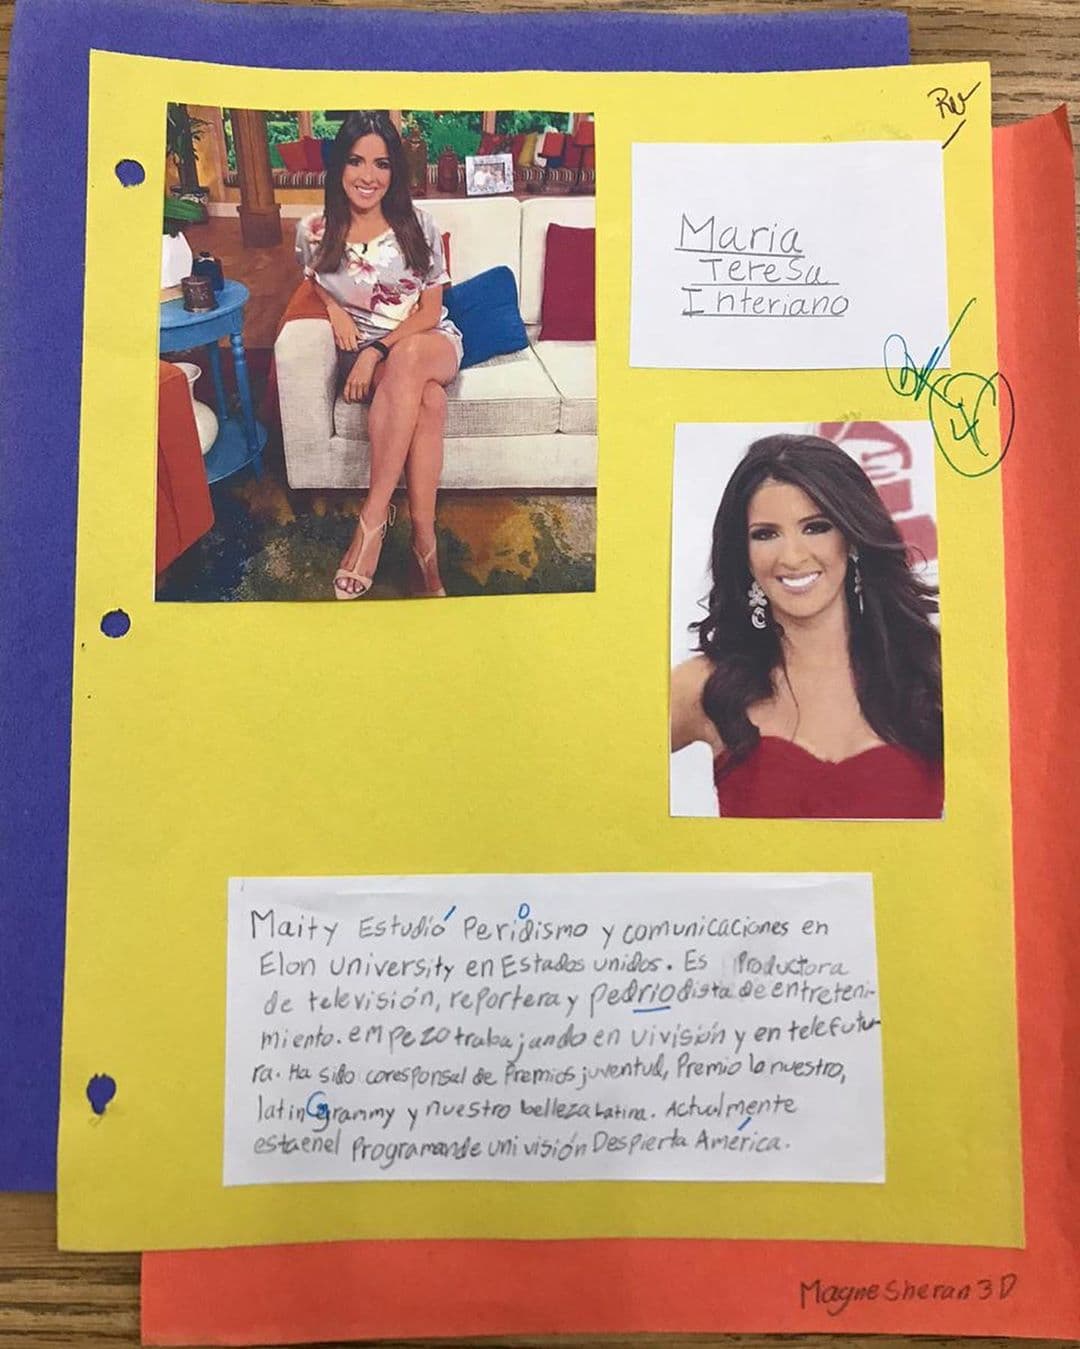 Maria
Teresa
Interiano
Maity Estudió Peridismo y comunicaciones en
o
Elon University en Estados unidos. Es Productora
de televisión, reportera y pedriodista de entreteni-
miento. empezo trabajando en vivisión y en telefutu
ra. Ha sido coresponsal de Premios juventud, Premio lo nuestro,
latin Grammy y nuestro belleza Latina. Actualmente
esta enel Programande univisión Despierta América.
Magne Sheran 3D